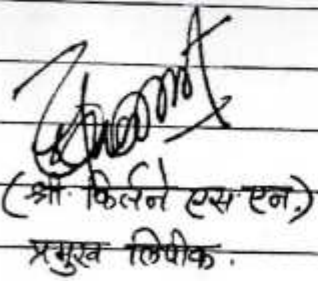 (श्री. किर्तने एस.एन.)
प्रमुख लिपीक.